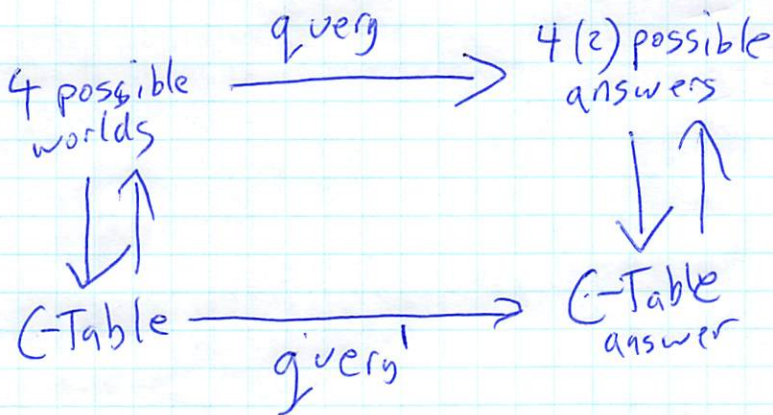 query
4 possible
worlds
4 (2) possible
answers
C-Table
query'
C-Table
answer